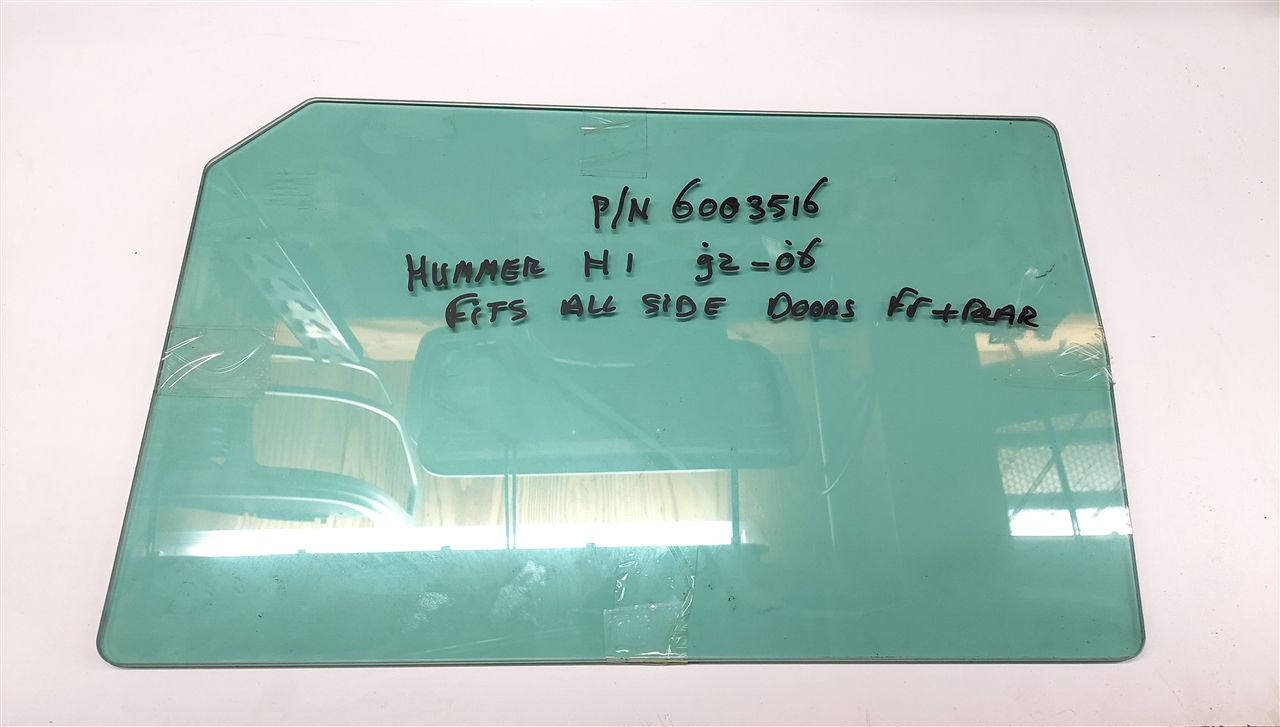 P/N 6003516
HUMMER H1 92-06
FITS ALL SIDE DOORS FR + REAR